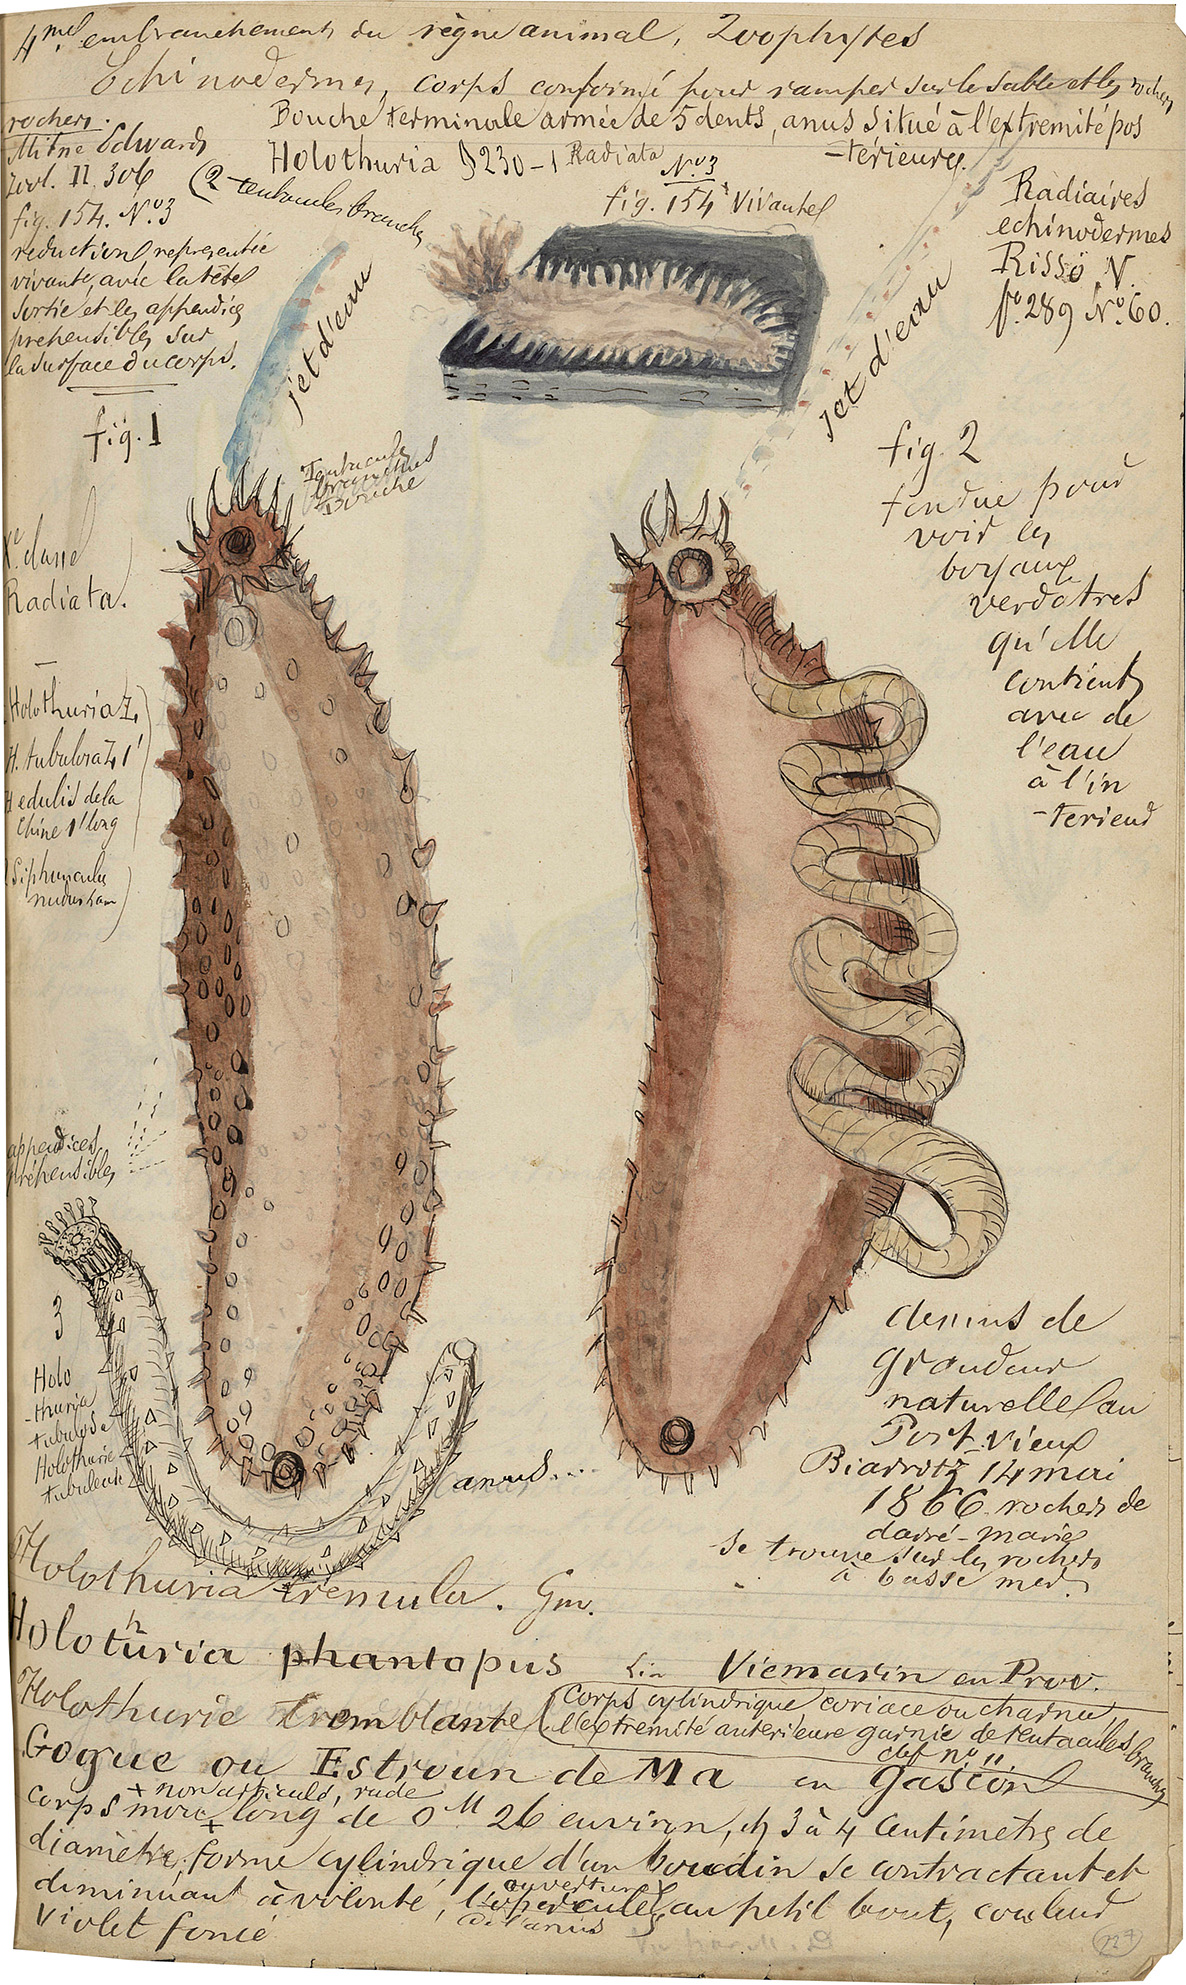 4me embranchement du règne animal, Zoophytes
Echinodermes, corps conformé pour ramper sur le sable et les rochers
rochers.
Bouche terminale armée de 5 dents, anus situé à l'extremité pos
-térieure.
Milne Edwards
Zool. II 306
fig. 154. No.3
reduction representée
vivante, avec la tête
sortie et les appendices
prehensibles sur
la surface du corps.
Holothuria § 230-1 Radiata
(2 tentacules branchus
No.3
fig. 154 Vivante
Radiaires
echinodermes
Risso V.
fo. 289 No. 60.
jet d'eau
jet d'eau
fig. 1
Tentacules
branchus
Bouche
fig. 2
fendue pour
voir les
boyaux
verdatres
qu'elle
contient
avec de
l'eau
à l'in
-terieur
Radiata.
Holothuria
H. tubulosa 1'
H edulis de la
Chine 1' long
Siphunculus
nudus
appendices
préhensibles
3
Holo
-thuria
tubulosa
Holothurie
tubuleuse
anus...
dessins de
grandeur
naturelle au
Port-vieux
Biarritz 14 mai
1866 rochers de
se trouve sur les rochers
à basse mer.
Holothuria tremula. Gm.
Holothuria phantopus Lin Viemarin en Prov.
Holothurie tremblante (Corps cylindrique coriace ou charnu,
l'extremité anterieure garnie de tentacules branchus
Gogue ou Estroun de Ma en gascon
clef no 11
+ non articulé, rude
corps mou + long de 0M 26 environ, et 3 à 4 Centimetres de
diamètre, forme cylindrique d'un boudin se contractant et
diminuant à volonté, l'opercule au petit bout, couleur
ouverture
de l'anus
violet foncé